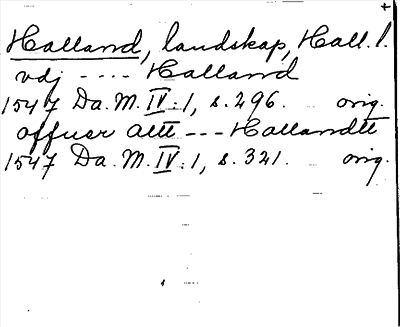 Halland, landskap, Hall. l.
vdj ---- Halland
1547 Da. M. IV:1, s. 296. orig.
offuer altt --- Hallandtt
1547 Da. M. IV:1, s. 321. orig.